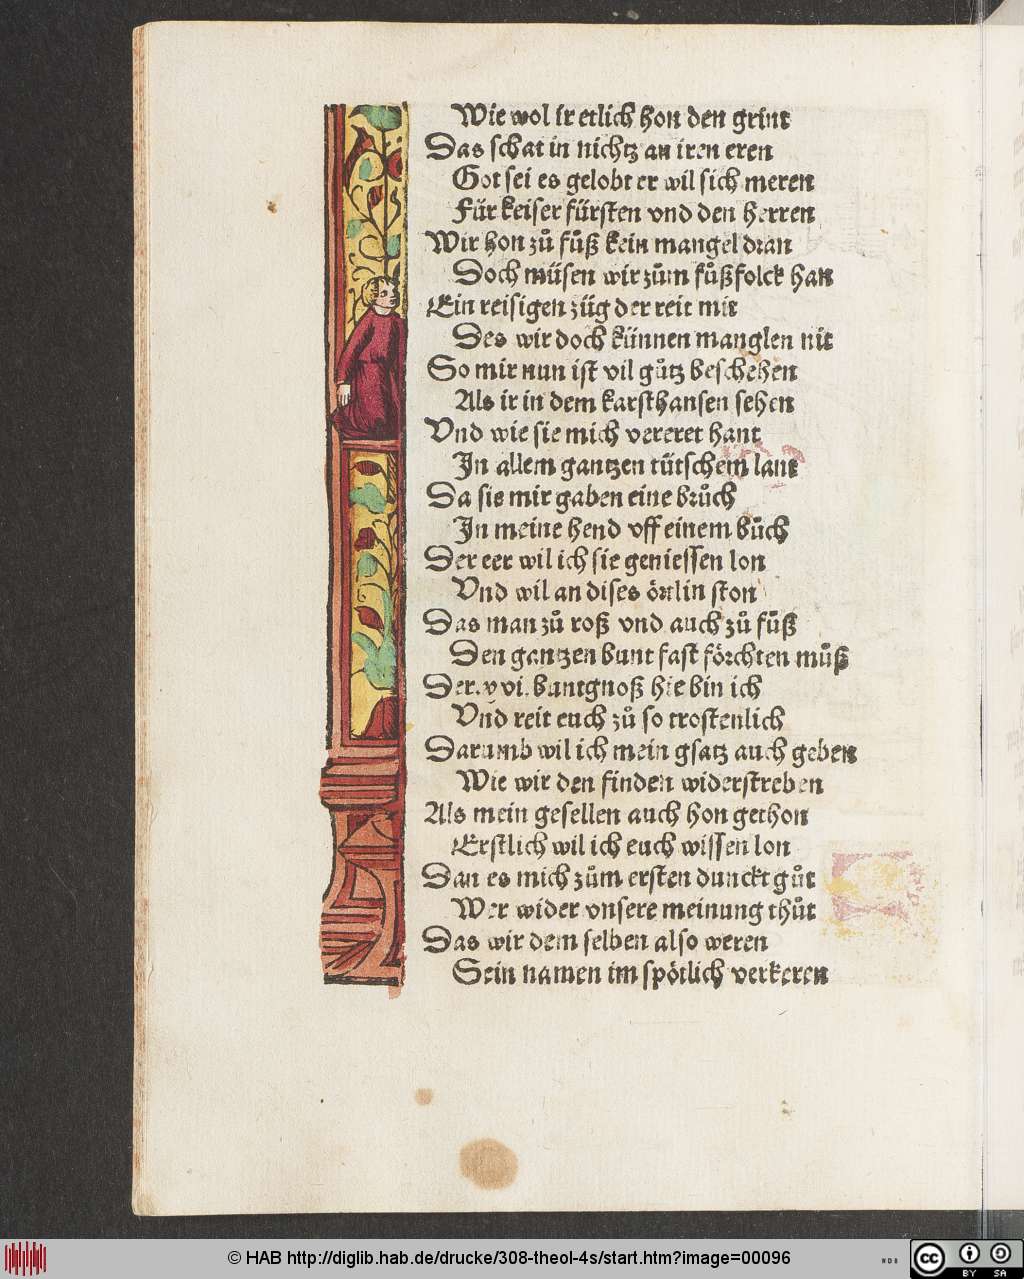 Wie wol ir etlich hon den grint
Das schat in nichtz an iren eren
Got sei es gelobt er wil sich meren
Für keiser fürsten vnd den herren
Wir hon zů fůß kein mangel dran
Doch müsen wir zům fůßfolck han
Ein reisigen züg der reit mit
Des wir doch künnen manglen nit
So mir nun ist vil gůtz beschehen
Als ir in dem karsthansen sehen
Vnd wie sie mich vereret hant
In allem gantzen tütschem lant
Da sie mir gaben eine brůch
In meine hend vff einem bůch
Der eer wil ich sie geniessen lon
Vnd wil an dises örtlin ston
Das man zů roß vnd auch zů fůß
Den gantzen bunt fast förchten můß
Der.xvi.buntgnoß hie bin ich
Vnd reit euch zů so trostenlich
Darumb wil ich mein gsatz auch geben
Wie wir den finden widerstreben
Als mein gesellen auch hon gethon
Erstlich wil ich euch wissen lon
Dan es mich zům ersten dunckt gůt
Wer wider vnsere meinung thůt
Das wir dem selben also weren
Sein namen im spötlich verkeren
© HAB http://diglib.hab.de/drucke/308-theol-4s/start.htm?image=00096
WDB
cc BY SA